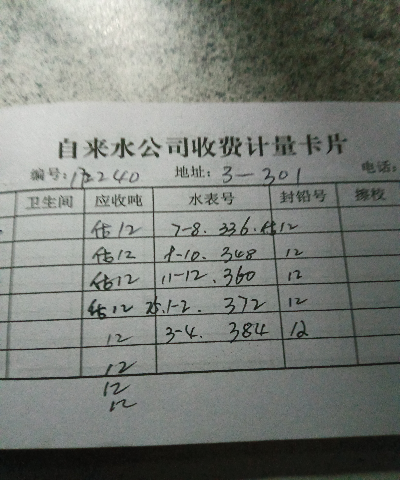 自来水公司收费计量卡片
编号:12240 地址:3-301 电话:
卫生间 应收吨 水表号 封铅号 检校
估12 7-8. 336. 估12
估12 9-10. 348 12
估12 11-12. 360 12
估12 25.1-2. 372 12
12 3-4. 384 12
12
12
12